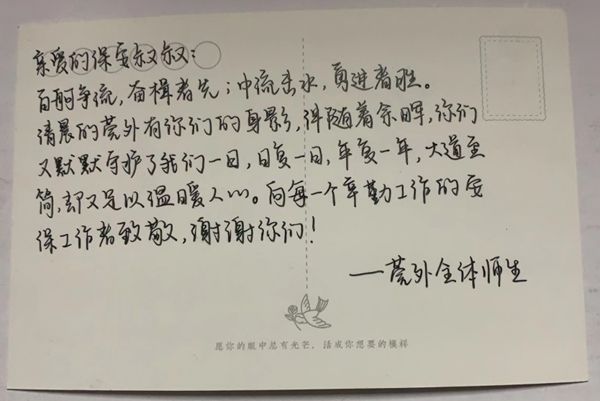 亲爱的保安叔叔：
百舸争流，奋楫者先；中流击水，勇进者胜。
清晨的莞外有你们的身影，伴随着余晖，你们
又默默守护了我们一日，日复一日，年复一年，大道至
简，却又足以温暖人心。向每一个辛勤工作的安
保工作者致敬，谢谢你们！
——莞外全体师生
愿你的眼中总有光芒，活成你想要的模样